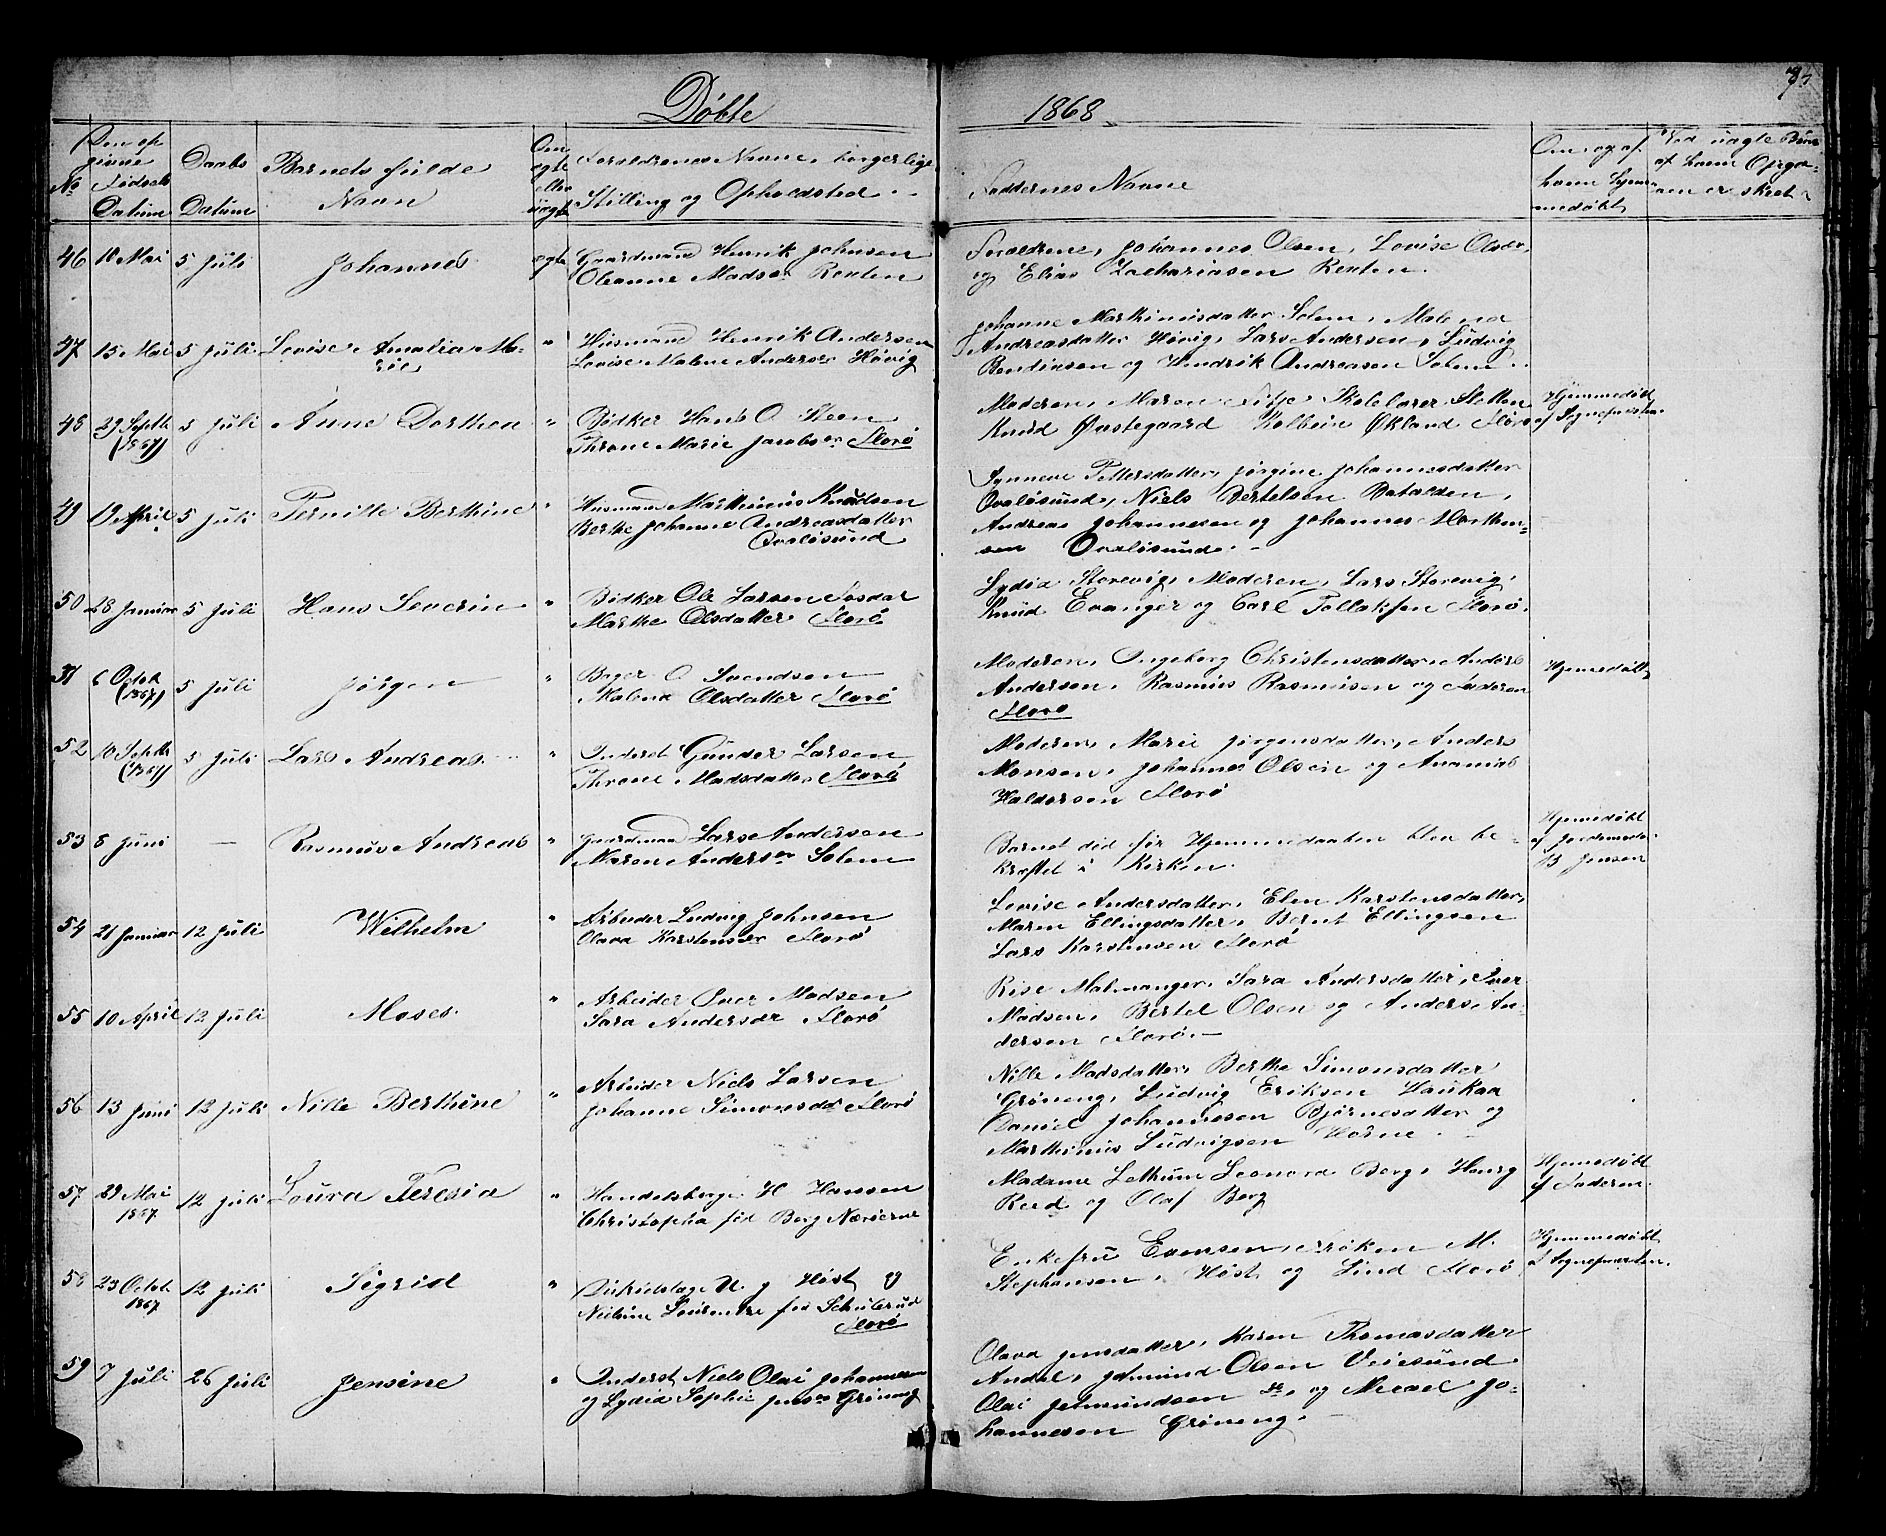 Døbte 1868
No
Den op
givne
Fødsels
Datum
Daabs
Datum
Barnets fulde
Navn
Om
ægte
eller
uægte
Forældrenes Navne, borgerlige
Stilling og Opholdsted
Faddernes Navne
Om og af
hvem hjem
medøbt
Ved uægte Børn
af hvem Opgi
en er skeet
46 10 Mai 5 Juli Johannes ægte Gaardmand Henrik Johnsen
Oleanne Madsdr Reksten
Forældrene, Johannes Olsen, Lovise Olsdr,
og Elias Zachariasen Reksten.
47 15 Mai 5 Juli Lovise Amalia Ma-
rie
" Husmand Henrik Andersen
Lovise Malene Andersdr Høvig
Johanne Marthinusdatter Solem, Malene
Andreasdatter Høvig, Lars Andersen, Ludvig
Bendixsen og Hendrik Andreasen Solem.
48 29 Septbr
(1867)
5 Juli Anne Dorthea " Bødker Hans O Steen
Throne Marie Jacobsdr Florø
Moderen, Maren Skolelærer Sletten
Knud Østegaard Kolbein Økland Florø
Hjemmedøbt
af Sognepresten
49 19 April 5 Juli Pernille Berthine " Husmand Marthinus Knudsen
Berthe Johanne Andreasdatter
Ovaløsund
Synneve Pettersdatter, Jørgine Johannesdatter
Ovaløsund, Niels Bertelsen Batalden,
Andreas Johannesen og Johannes Morthen-
sen Ovaløsund.
50 28 Januar 5 Juli Hans Severin " Bødker Ole Larsen
Marthe Olsdatter Florø
Lydia Storevig, Moderen, Lars Storevig,
Knud Evanger og Carl Tollaksen Florø.
51 6 Octob
(1867)
5 Juli Jørgen " Bager O Svendsen
Malene Olsdatter Florø
Moderen, Ingeborg Christensdatter, Anders
Andersen, Rasmus Rasmusen og Faderen
Florø
Hjemmedøbt
52 10 Septbr
(1867)
5 Juli Lars Andreas " Inderst Gunder Larsen
Throne Madsdatter Florø
Moderen, Marie Jørgensdatter, Anders
Monsen, Johannes Olsen og Ananias
Haldorsen Florø
53 8 Juni — Rasmus Andreas " Gaardmand Lars Andersen
Maren Andersdr Solem
Barnet død før Hjemmedaaben blev be-
kræftet i Kirken.
Hjemmedøbt
af Jordemoder
B Jensen
54 21 Januar 12 Juli Wilhelm " Arbeider Ludvig Johnsen
Olava Karstensdr Florø
Lovise Andersdatter, Elen Karstensdatter,
Maren Ellingsdatter, Bernt Ellingsen
Lars Karstensen Florø
55 10 April 12 Juli Moses " Arbeider Iver Madsen
Sara Andersdr Florø
Rise Malmanger, Sara Andersdatter, Iver
Madsen, Bertel Olsen og Anders An-
dersen Florø.
56 13 Juni 12 Juli Nille Berthine " Arbeider Niels Larsen
Johanne Simonsdr Florø
Nille Madsdatter, Berthe Simonsdatter
Grøneng, Ludvig Eriksen Haukaa
Daniel Johannesen Bjørnesætter og
Marthinus Ludvigsen Horne.
57 29 Mai
1867
12 Juli Loura Teresia " Handelsborger H Hanssen
Christopha fød Berg Nærøerne
Madame Lethum Leonora Berg, Henrg
Reed og Olaf Berg
Hjemmedøbt
af Faderen.
58 23 Octob
1867
12 Juli Sigrid " Distriktslæge U. J Høst og
Nielsine Lourentze fød Schulerud
Florø
Enkefru Evensen, Frøken M.
Stephansen, Høst og Lind Florø
Hjemmedøbt
af Sognepresten.
59 7 Juli 26 Juli Jensine " Inderst Niels Olai Johannesen
og Lydia Sophie Jensdr Grøneng
Olava Jensdatter, Karen Thomasdatter
Andal, Jetmund Olsen Veiesund
Olai Jetmundsen do, og Mecael Jo-
hannesen Grøneng.